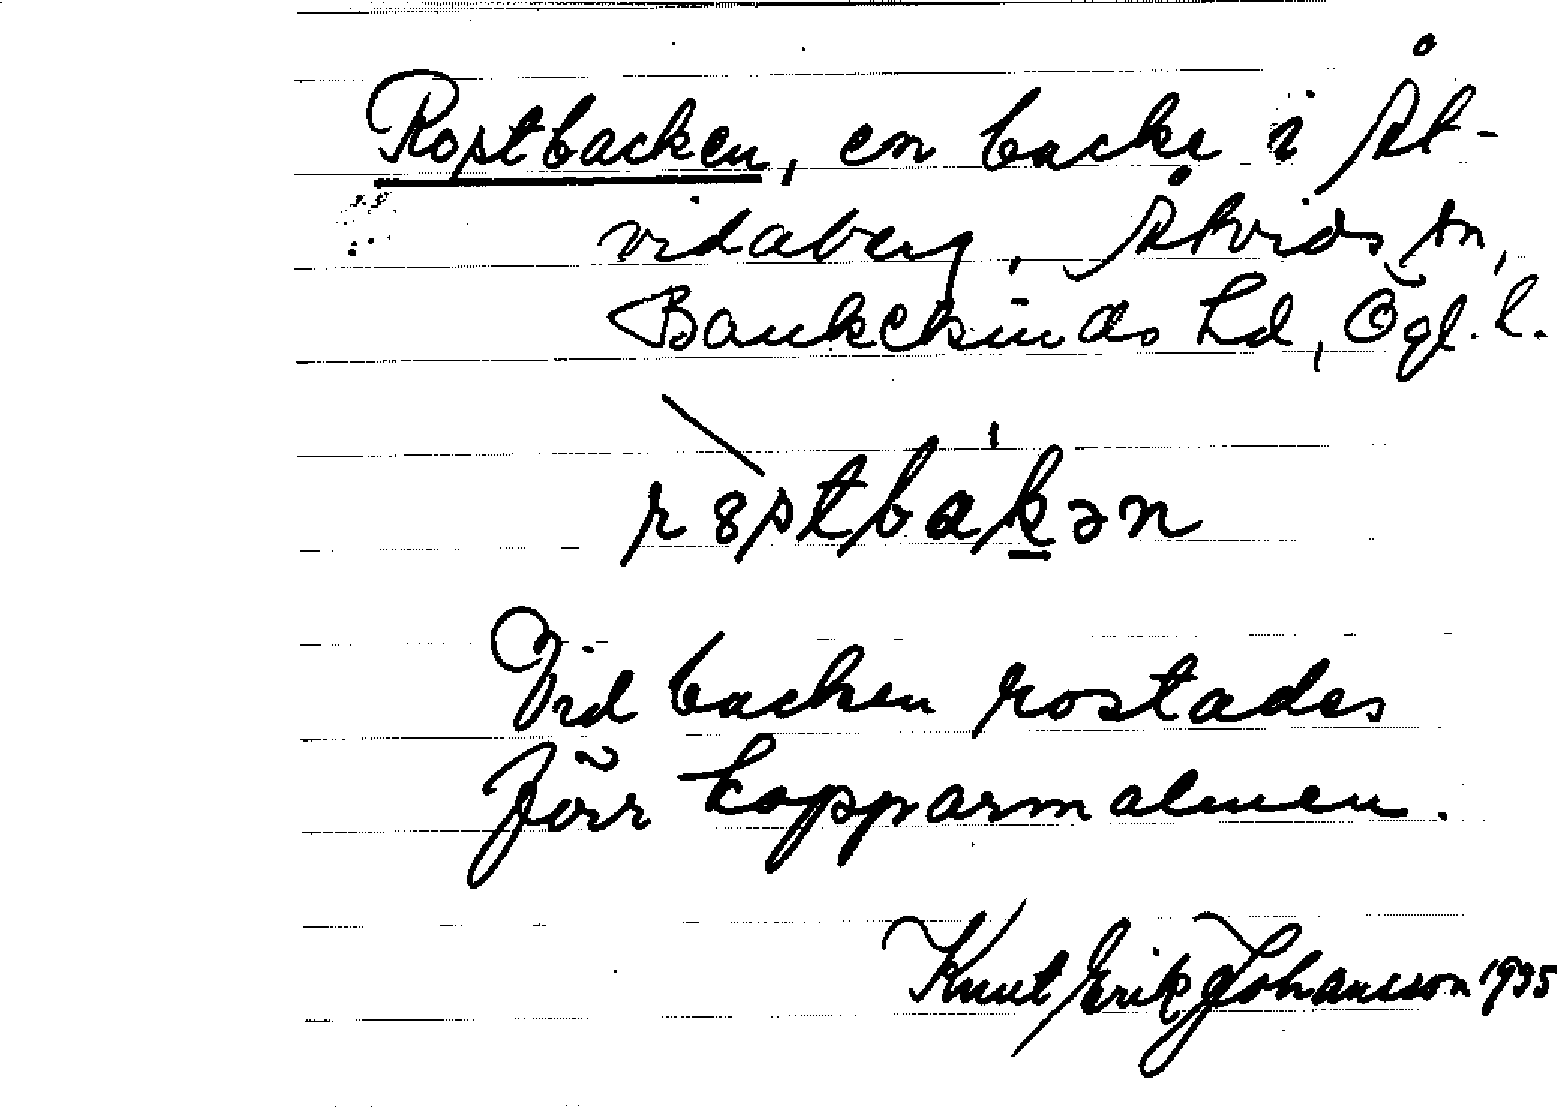 Rostbacken, en backe i Åt-
vidaberg, Åtvids sn,
Bankekinds hd, Ögl. l.
r8stbakən
Vid backen rostades
förr kopparmalmen.
Knut Erik Johansson 1935